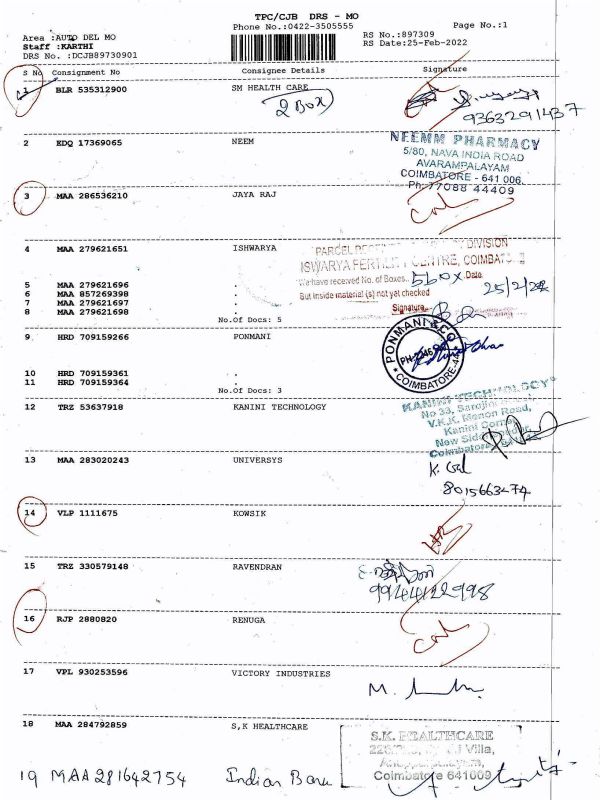 TPC/CJB DRS - MO
Phone No.:0422-3505555
Page No.:1
Area :AUTO DEL MO
Staff :KARTHI
DRS No. :DCJB89730901
RS No.:897309
RS Date:25-Feb-2022
S No Consignment No Consignee Details Signature
1 BLR 535312900 SM HEALTH CARE
2 Box
9363291437
2 EDQ 17369065 NEEM
NEEMM PHARMACY
5/80, NAVA INDIA ROAD
AVARAMPALAYAM
COIMBATORE - 641 006
Ph: 77088 44409
3 MAA 286536210 JAYA RAJ
4 MAA 279621651 ISHWARYA
PARCEL DIVISION
ISWARYA FERTILITY CENTRE, COIMBATORE
We have received No. of Boxes 5 box Date
But inside material (s) not yet checked
25/2/22
Signature
5 MAA 279621696 .
6 MAA 857269398 .
7 MAA 279621697 .
8 MAA 279621698 .
No.Of Docs: 5
9 HRD 709159266 PONMANI
PONMANI & CO
COIMBATORE
10 HRD 709159361 .
11 HRD 709159364 .
No.Of Docs: 3
12 TRZ 53637918 KANINI TECHNOLOGY
KANINI TECHNOLOGY
No 33, Sarojini
V.K.K. Menon Road,
Kanini Corner
New Sidhapudur,
Coimbatore
13 MAA 283020243 UNIVERSYS
8015663474
14 VLP 1111675 KOWSIK
15 TRZ 330579148 RAVENDRAN
9944122998
16 RJP 2880820 RENUGA
17 VPL 930253596 VICTORY INDUSTRIES
18 MAA 284792859 S,K HEALTHCARE
S.K. HEALTHCARE
Villa,
Coimbatore 641009
19 MAA281642754 Indian Bank